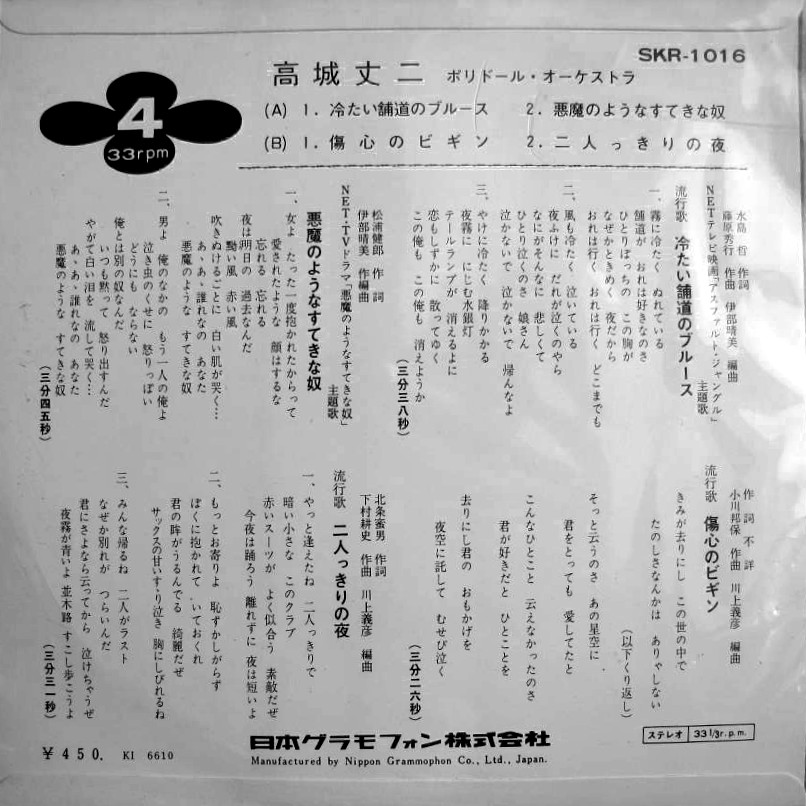 SKR-1016
高城丈二 ポリドール・オーケストラ
4
33rpm
(A) 1. 冷たい舗道のブルース 2. 悪魔のようなすてきな奴
(B) 1. 傷心のビギン 2. 二人っきりの夜
水島哲 作詞
藤原秀行 作曲 伊部晴美 編曲
NETテレビ映画「アスファルト・ジャングル」主題歌
流行歌 冷たい舗道のブルース
一、霧に冷たく ぬれている
舗道が おれは好きなのさ
ひとりぼっちの この胸が
なぜかときめく 夜だから
おれは行く おれは行く どこまでも
二、風も冷たく 泣いている
夜ふけに だれが泣くのやら
なにがそんなに 悲しくて
ひとり泣くのさ 娘さん
泣かないで 泣かないで 帰んなよ
三、やけに冷たく 降りかかる
夜霧に にじむ水銀灯
テールランプが 消えるよに
恋もしずかに 散ってゆく
この俺も この俺も 消えようか
(三分三八秒)
松浦健郎 作詞
伊部晴美 作編曲
NET・TVドラマ「悪魔のようなすてきな奴」主題歌
悪魔のようなすてきな奴
一、女よ たった一度抱かれたからって
愛されたような 顔はするな
忘れる 忘れる
夜は明日の 過去なんだ
黝い風 赤い風
吹きぬけるごとに 白い肌が哭く…
あゝあゝ誰れなの あなた
悪魔のような すてきな奴
二、男よ 俺のなかの もう一人の俺よ
泣き虫のくせに 怒りっぽい
どうにも ならない
俺とは別の奴なんだ
いつも黙って 怒り出すんだ
やがて白い泪を 流して哭く…
あゝあゝ誰れなの あなた
悪魔のような すてきな奴
(三分四五秒)
作詞不詳
小川邦保 作曲 川上義彦 編曲
流行歌 傷心のビギン
きみが去りにし この世の中で
たのしさなんかは ありゃしない
(以下くり返し)
そっと云うのさ あの星空に
君をとっても 愛してたと
こんなひとこと 云えなかったのさ
君が好きだと ひとことを
去りにし君の おもかげを
夜空に託して むせび泣く
(三分二六秒)
北条蜜男 作詞
下村耕史 作曲 川上義彦 編曲
流行歌 二人っきりの夜
一、やっと逢えたね 二人っきりで
暗い小さな このクラブ
赤いスーツが よく似合う 素敵だぜ
今夜は踊ろう 離れずに 夜は短いよ
二、もっとお寄りよ 恥ずかしがらず
ぼくに抱かれて いておくれ
君の眸がうるんでる 綺麗だぜ
サックスの甘いすゝり泣き 胸にしびれるね
三、みんな帰るね 二人がラスト
なぜか別れが つらいんだ
君にさよなら云ってから 泣けちゃうぜ
夜霧が青いよ 並木路 すこし歩こうよ
(三分三一秒)
¥450. KI 6610
日本グラモフォン株式会社
Manufactured by Nippon Grammophon Co., Ltd., Japan.
ステレオ 33 1/3 r.p.m.